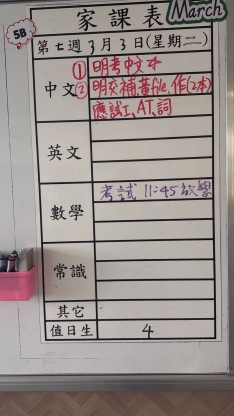 家課表
March
5B
第七週3月3日(星期二)
中文
① 明考中文卷
② 明交補苦file、作(2本)
應試工、AT、詞
英文
數學
考試 11:45放學
常識
其它
值日生
4